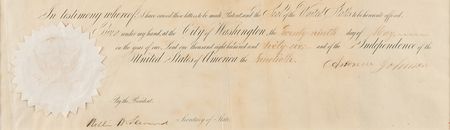 In testimony whereof I have caused these letters to be made Patent and the Seal of the United States to be hereunto affixed.
Given under my hand, at the City of Washington, the Twenty ninth day of
in the year of our Lord one thousand eight hundred and sixty six and of the Independence of the
United States of America the Ninetieth.
Andrew Johnson
By the President.
Secretary of State.